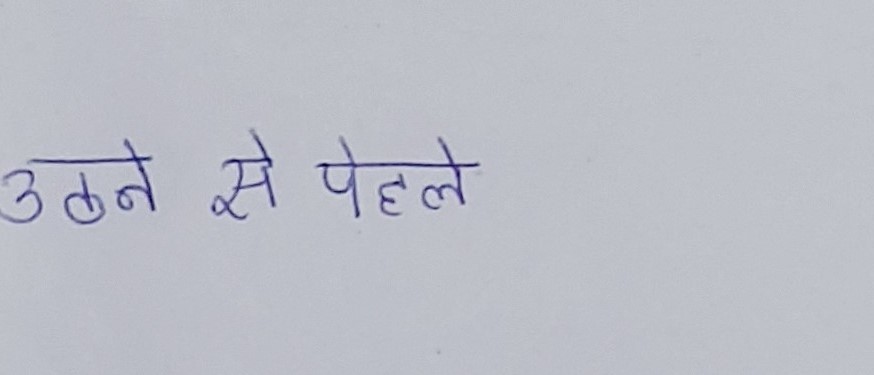 उठने से पेहले